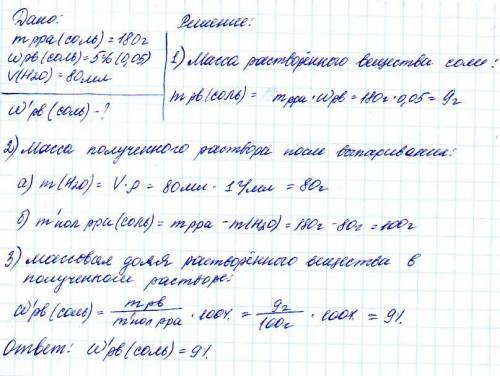 Дано:
mрра(соль)=180г
wрв(соль)=5%(0,05)
V(H2O)=80мл
w'рв(соль)-?
Решение:
1) Масса растворённого вещества соли:
mрв(соль)= mрра·wрв=180г·0,05=9г
2) Масса полученного раствора после выпаривания:
а) m(H2O)= V·ρ = 80мл · 1г/мл = 80г
б) m'пол рра(соль)= mрра -m(H2O)=180г-80г=100г
3) массовая доля растворённого вещества в
полученном растворе:
w'рв(соль)= mрв/m'пол рра ·100%= 9г/100г ·100% = 9%
Ответ: w'рв(соль)=9%